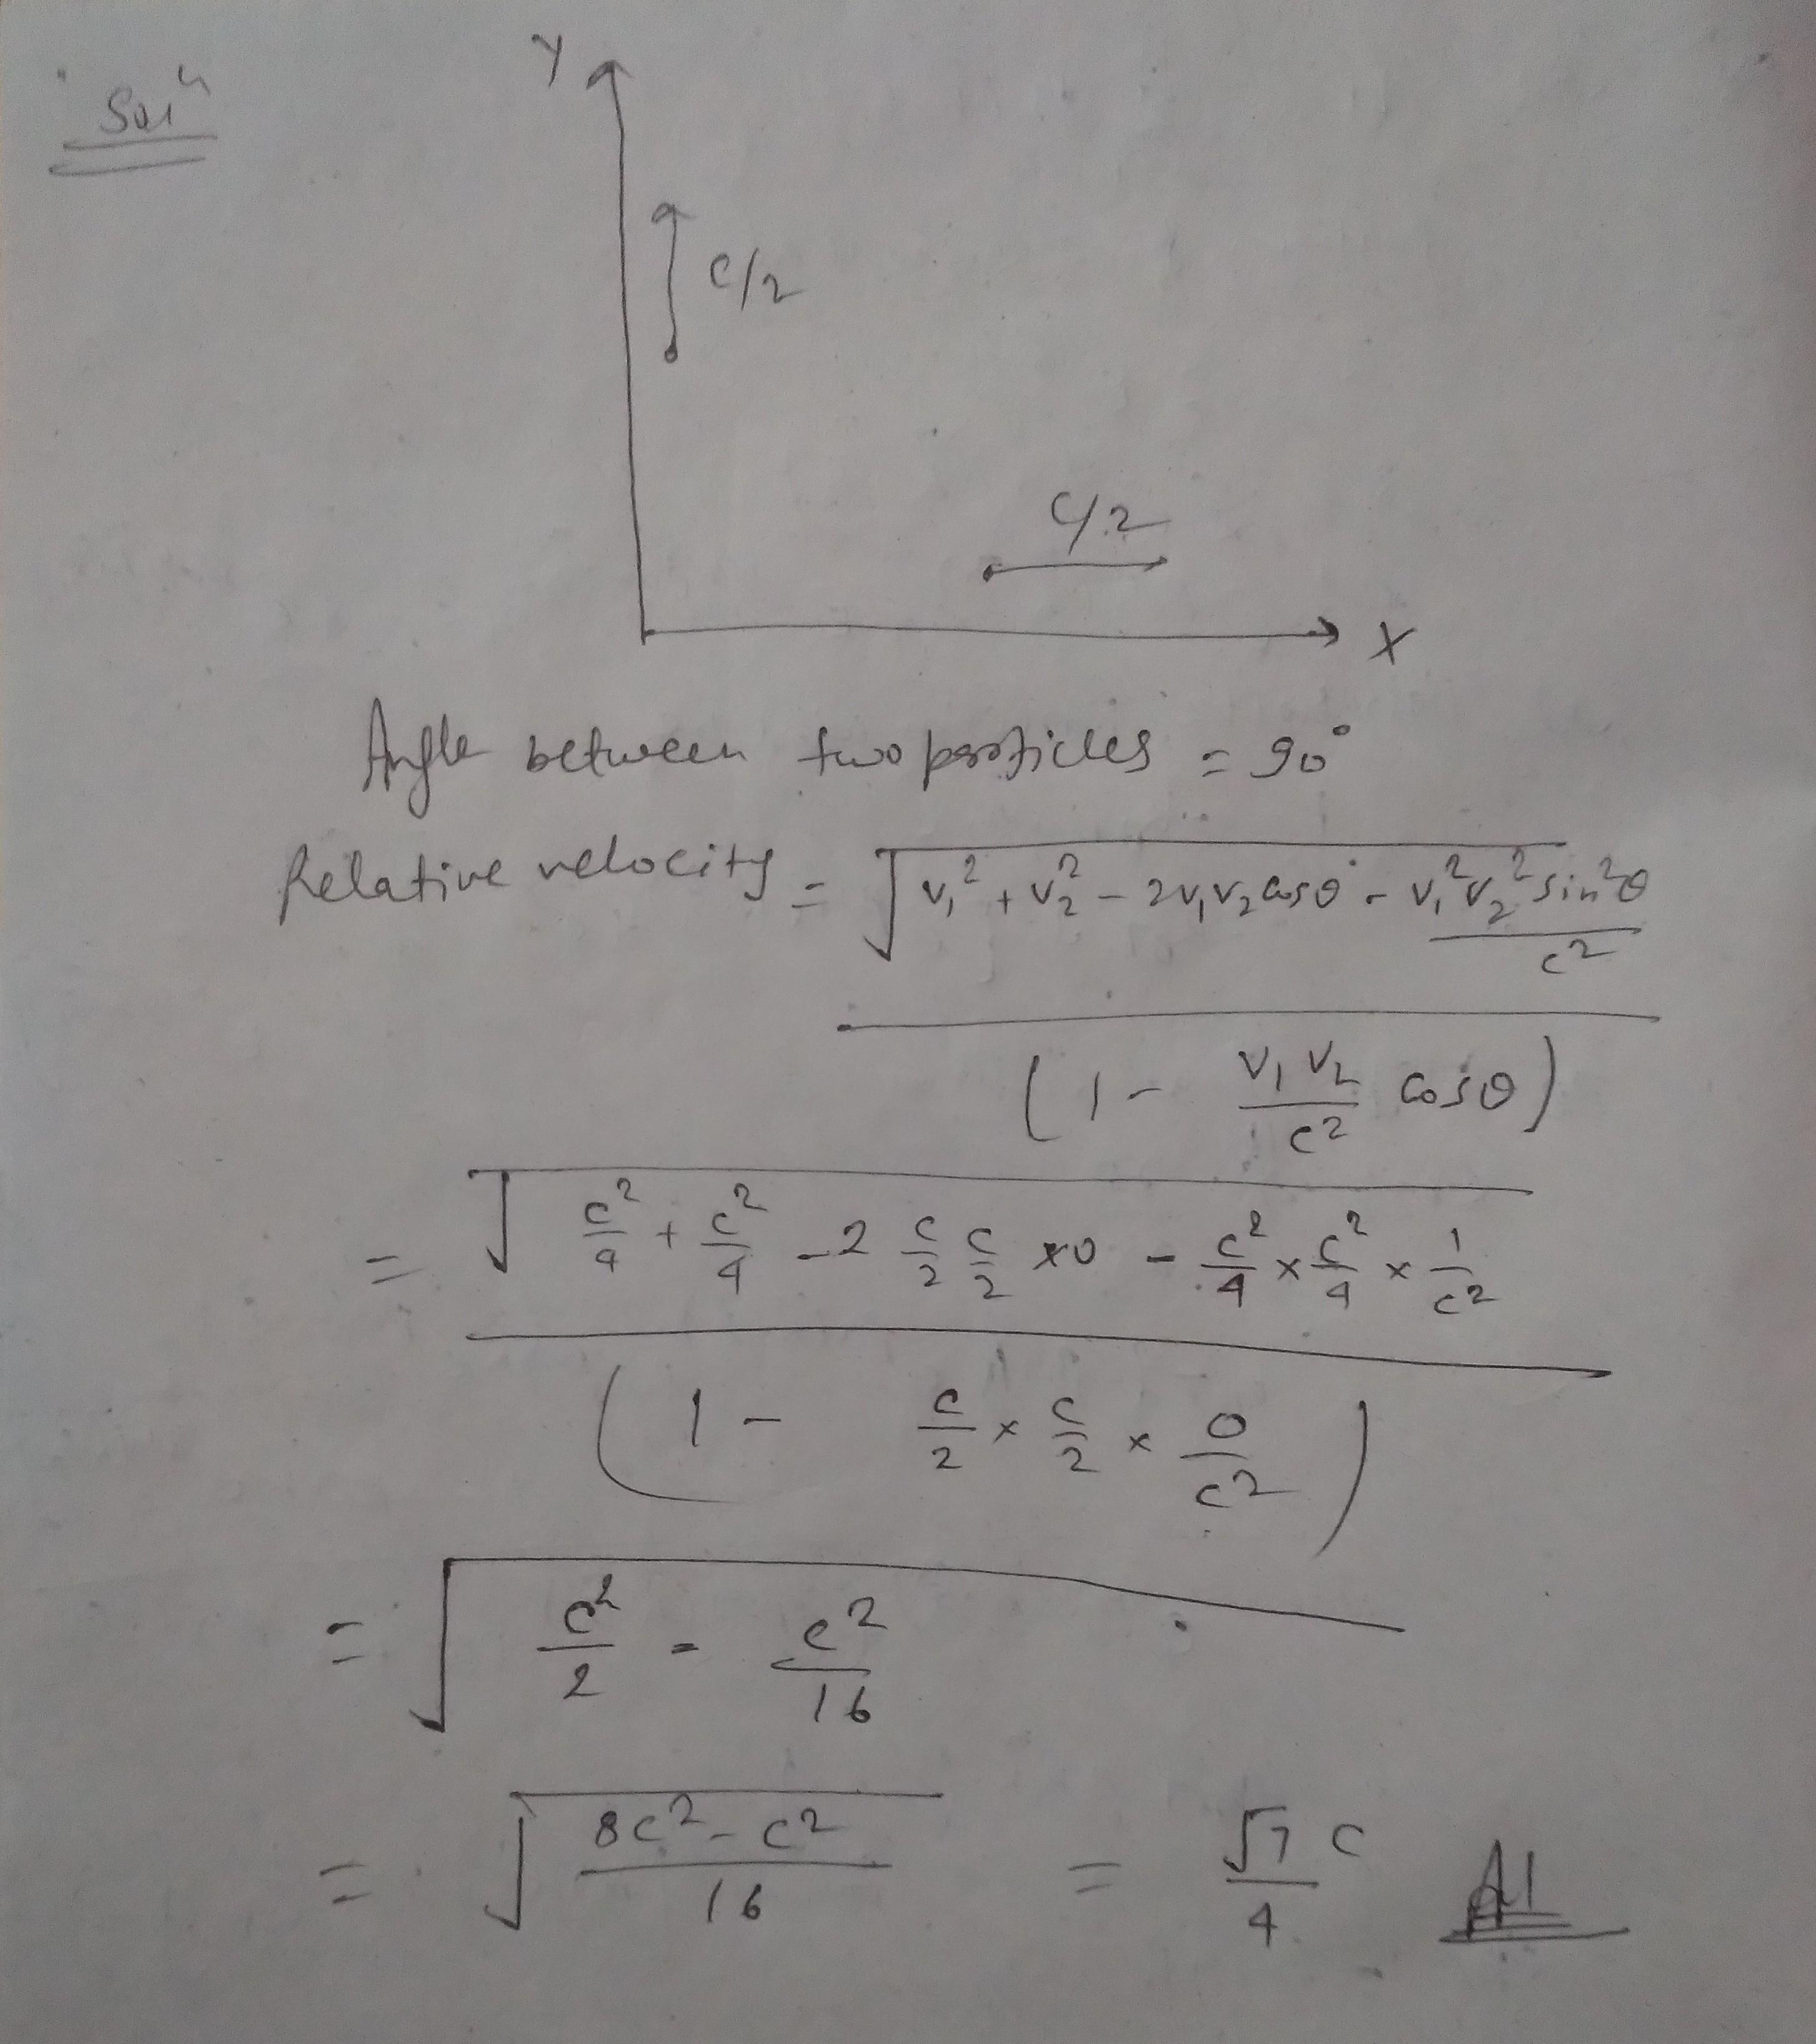 Solⁿ
Y
c/2
c/2
X
Angle between two particles = 90°
Relative velocity = √(v₁² + v₂² - 2v₁v₂ cosθ - v₁²v₂² sin²θ / c²) / (1 - v₁v₂/c² cosθ)
= √(c²/4 + c²/4 - 2 c/2 c/2 × 0 - c²/4 × c²/4 × 1/c²) / (1 - c/2 × c/2 × 0/c²)
= √(c²/2 - c²/16)
= √((8c² - c²)/16) = √7/4 c